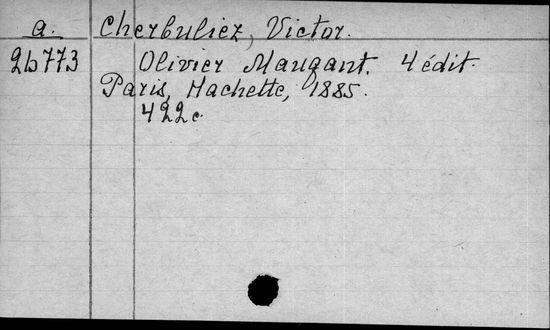 a. Cherbuliez, Victor.
2b773 Olivier Maugant. 4 édit.
Paris, Hachette, 1885.
422c.